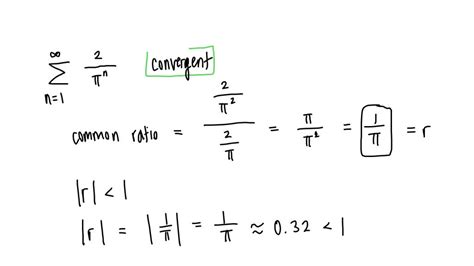 ∞
∑ 2/πⁿ convergent
n=1
common ratio = (2/π²)/(2/π) = π/π² = 1/π = r
|r| < 1
|r| = |1/π| = 1/π ≈ 0.32 < 1